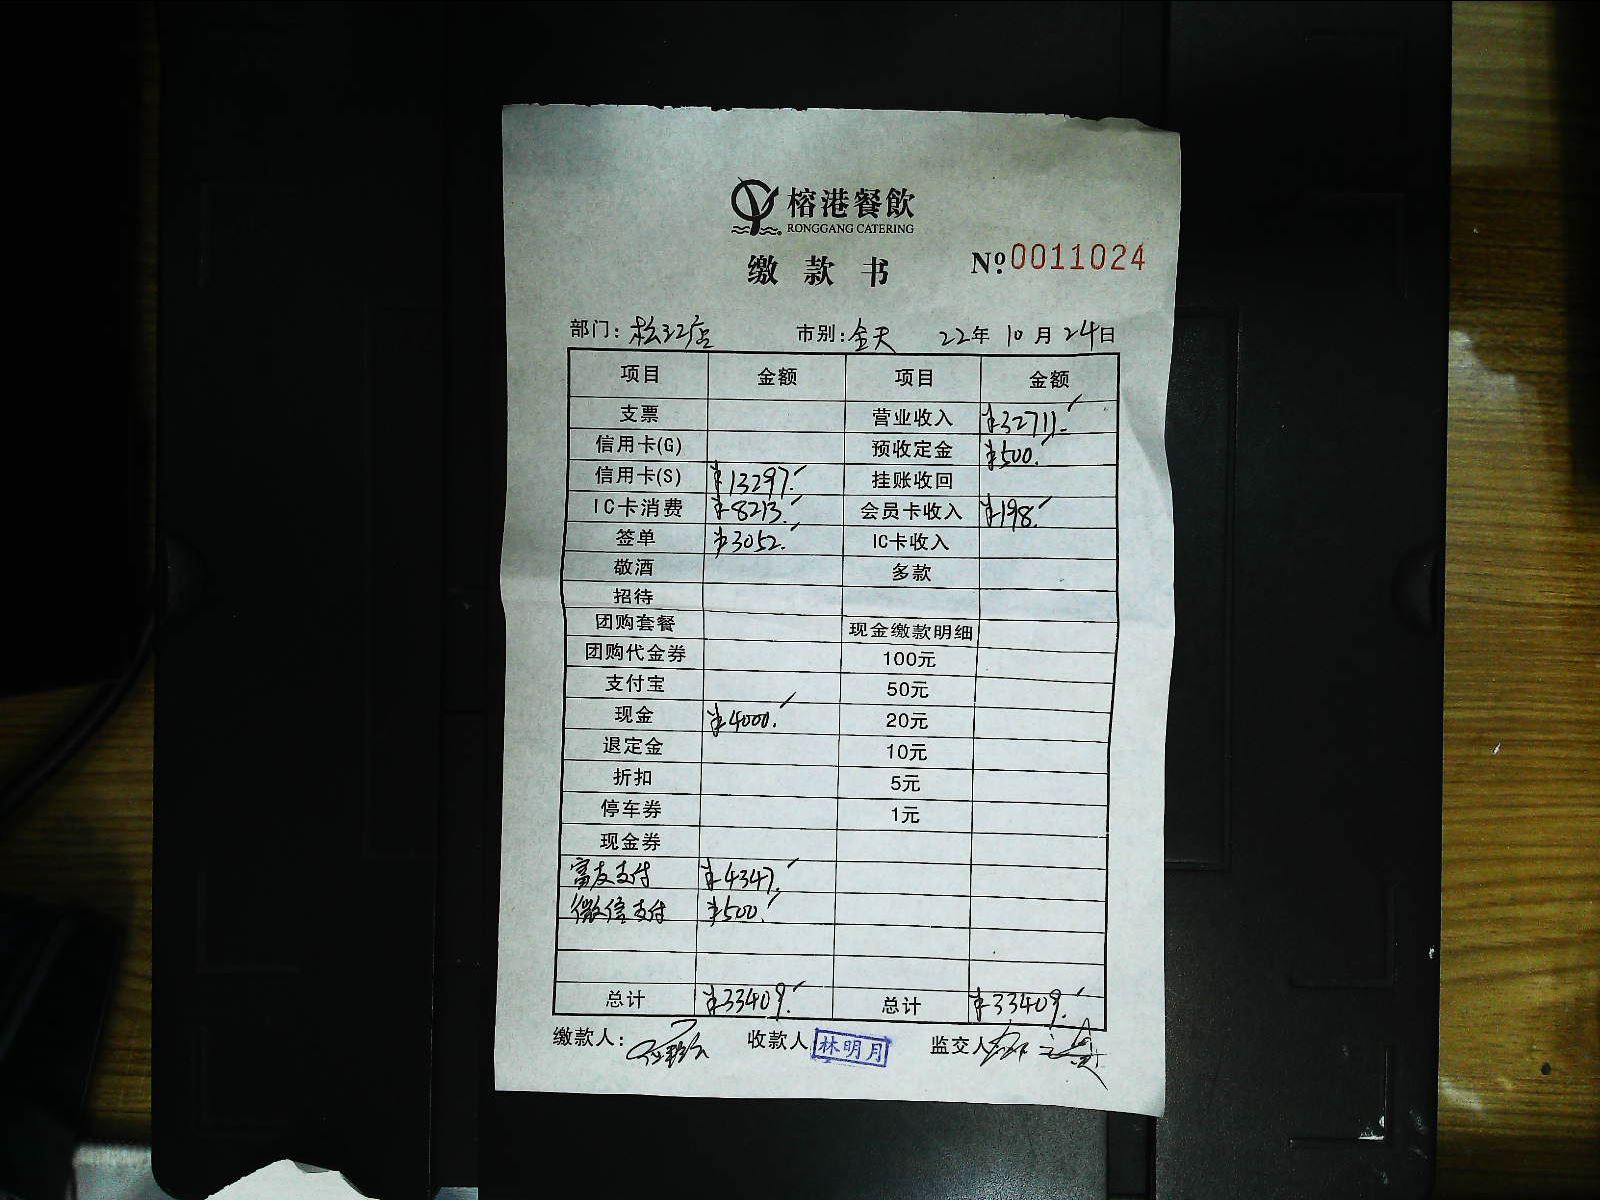 榕港餐飲
RONGGANG CATERING
缴款书 №0011024
部门: 松江店 市别: 全天 22年 10月 24日
项目 金额 项目 金额
支票 营业收入 ¥32711.
信用卡(G) 预收定金 ¥500.
信用卡(S) ¥13297. 挂账收回
IC卡消费 ¥8213. 会员卡收入 ¥198.
签单 ¥3052. IC卡收入
敬酒 多款
招待
团购套餐 现金缴款明细
团购代金券 100元
支付宝 50元
现金 ¥4000. 20元
退定金 10元
折扣 5元
停车券 1元
现金券
富友支付 ¥4347.
微信支付 ¥500.
总计 ¥33409. 总计 ¥33409.
缴款人: 收款人 林明月 监交人